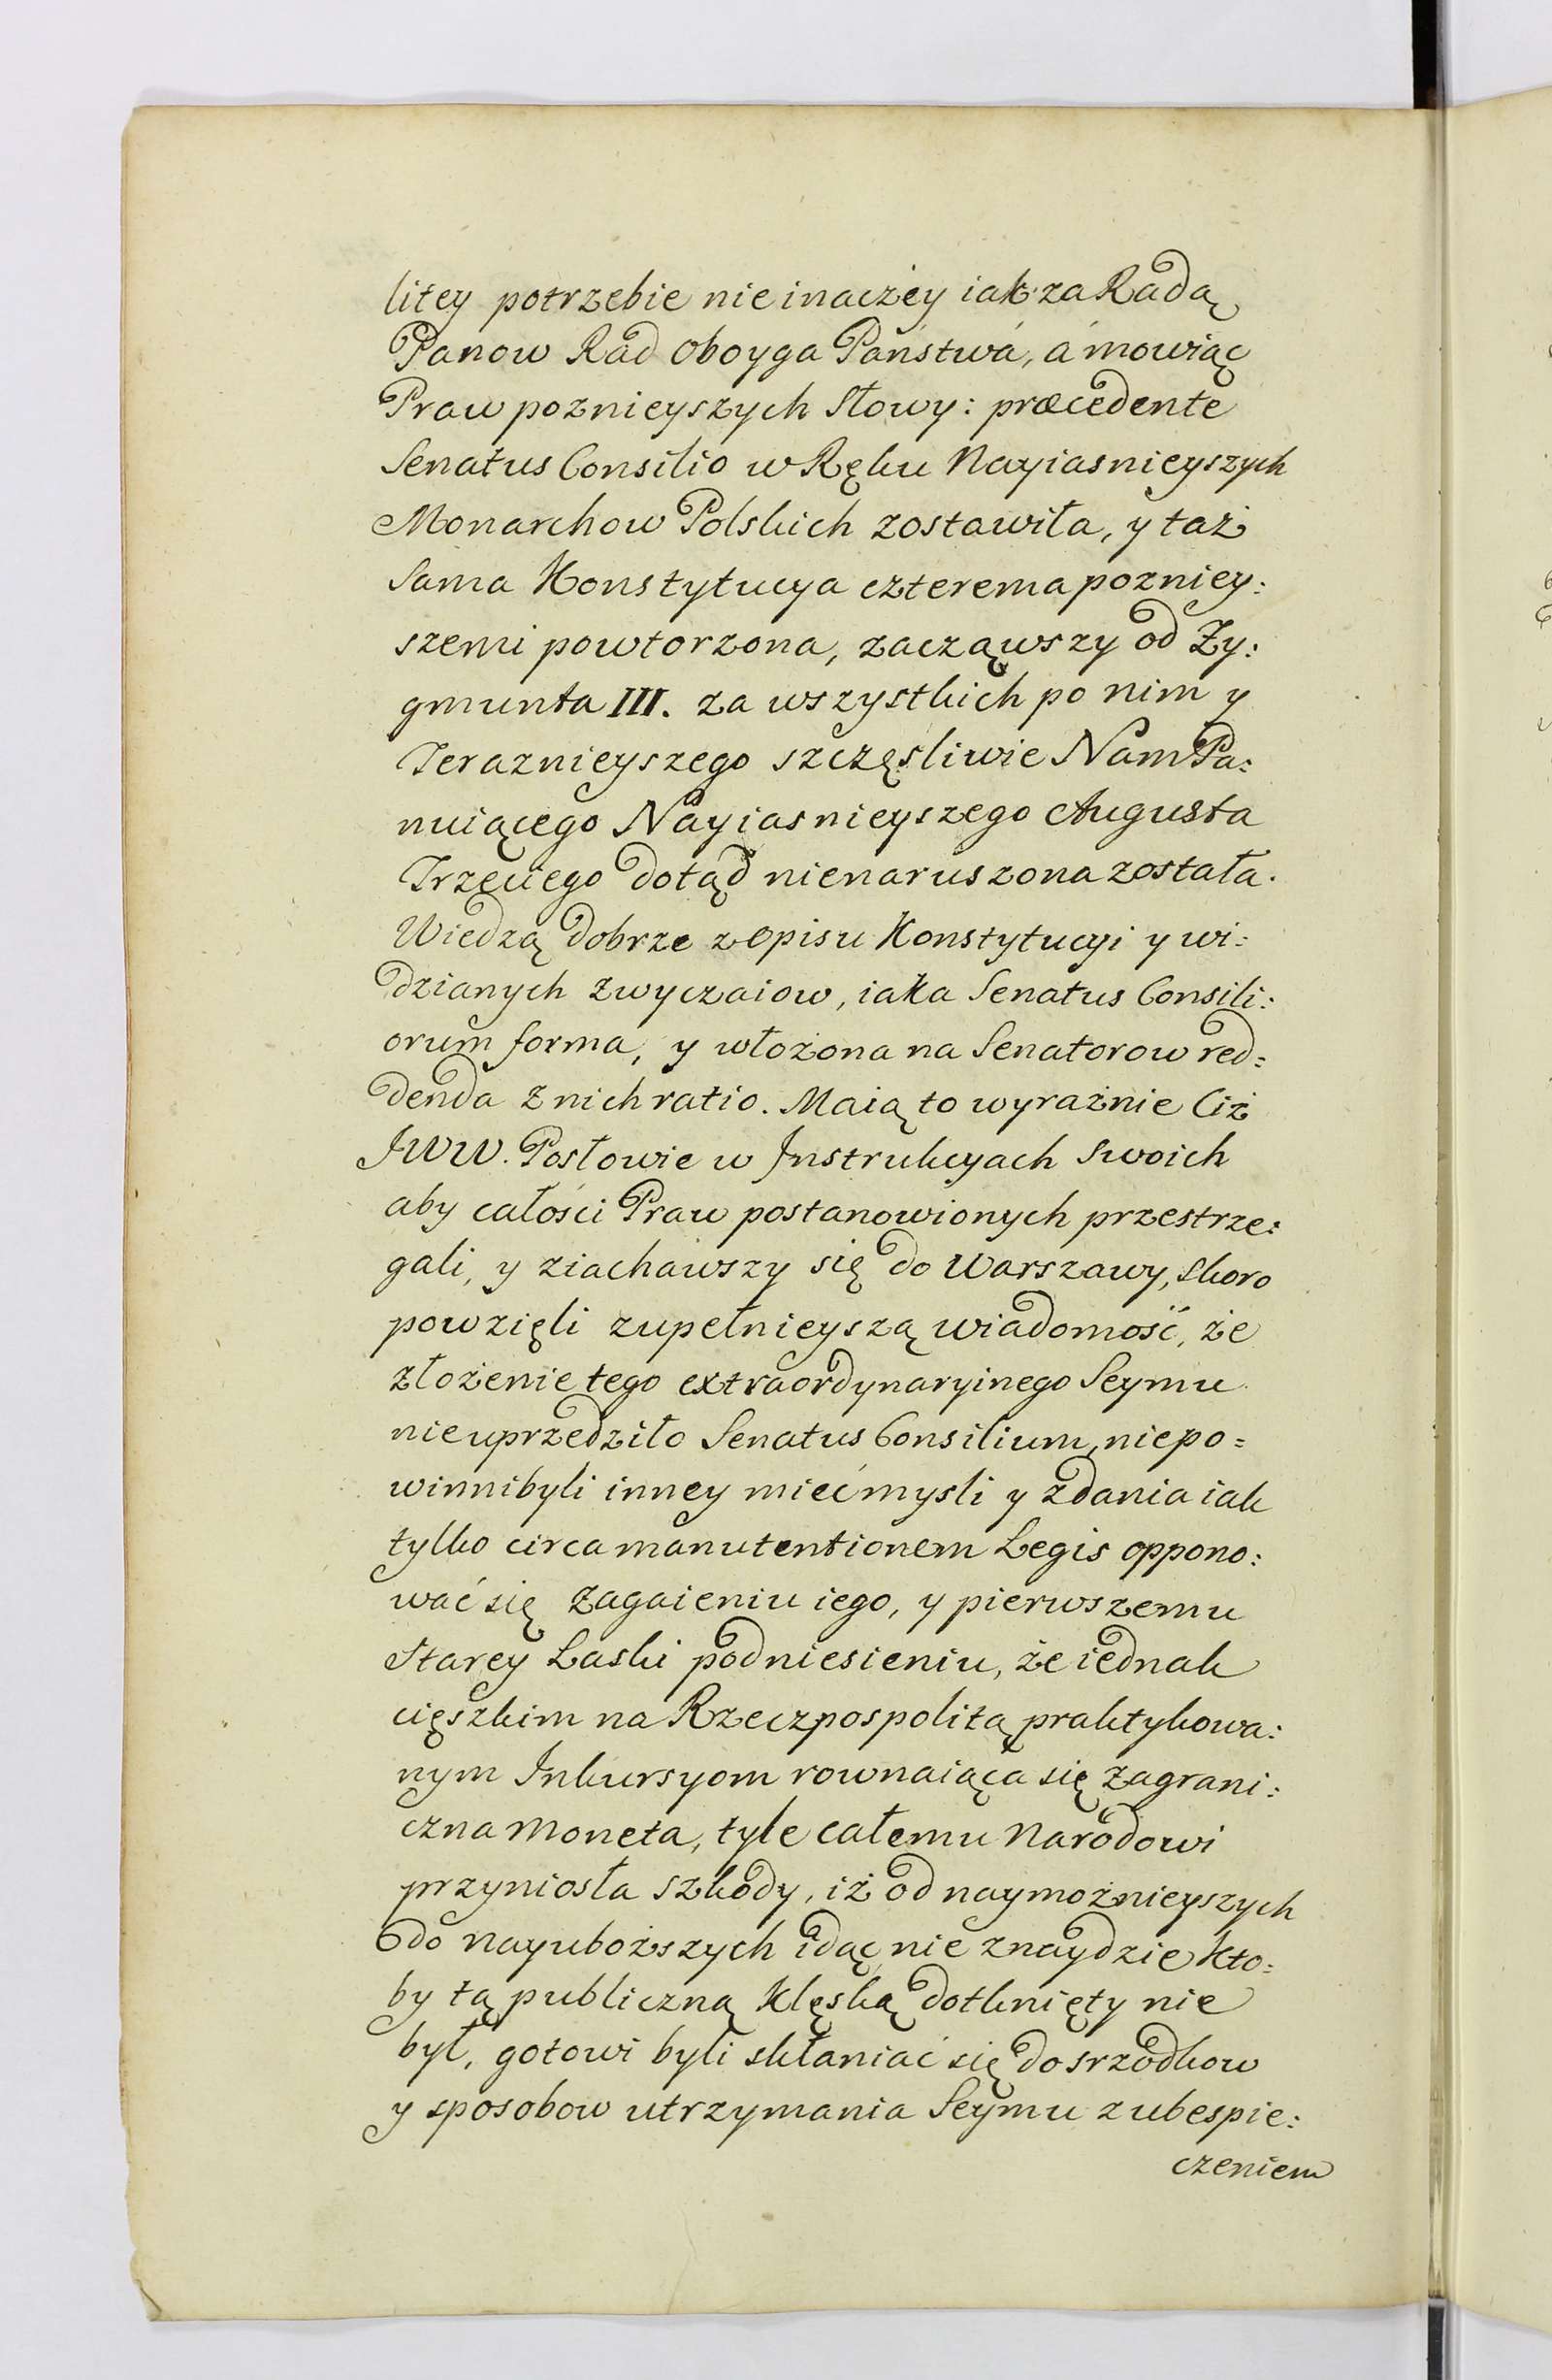 litey potrzebie nie inaczey iak za Radą
Panow Rad Oboyga Państwá, á mowiąc
Praw poznieyszych Słowy: præcedente
Senatus Consilio w Ręku Nayiasnieyszych
Monarchow Polskich zostawiła, y taż
Sama Konstytucya czterema pozniey:
szemi powtorzona, zacząwszy od Zy:
gmunta III. za wszystkich po nim y
Teraznieyszego szczęsliwie Nam Pa:
nuiącego Nayiasnieyszego Augusta
Trzeciego dotąd nienaruszona została.
Wiedzą dobrze z opisu Konstytucyi y wi:
dzianych zwyczaiow, iaka Senatus Consili:
orum forma, y włożona na Senatorow red:
denda z nich ratio. Maią to wyraźnie Ciż
JWW. Posłowie w Instrukcyach Swoich
aby całości Praw postanowionych przestrze:
gali, y ziachawszy się do Warszawy, skoro
powzięli zupełnieyszą wiadomość, że
złożenie tego extraordynaryinego Seymu
nieuprzedziło Senatus Consilium, niepo=
winni byli inney mieć mysli y zdania iak
tylko circa manutentionem Legis oppono:
wać się zagaieniu iego, y pierwszemu
Starey Laski podniesieniu, że iednak
cięszkim na Rzeczpospolitą praktykowa:
nym Inkursyom rownaiąca się zagrani:
czna moneta, tyle całemu Narodowi
przyniosła szkody, iż od naymożnieyszych
do nayuboższych idąc, nie znaydzie kto:
by tą publiczną Klęską dotknięty nie
był, gotowi byli skłaniać się do srzodkow
y sposobow utrzymania Seymu z ubespie:
czeniem